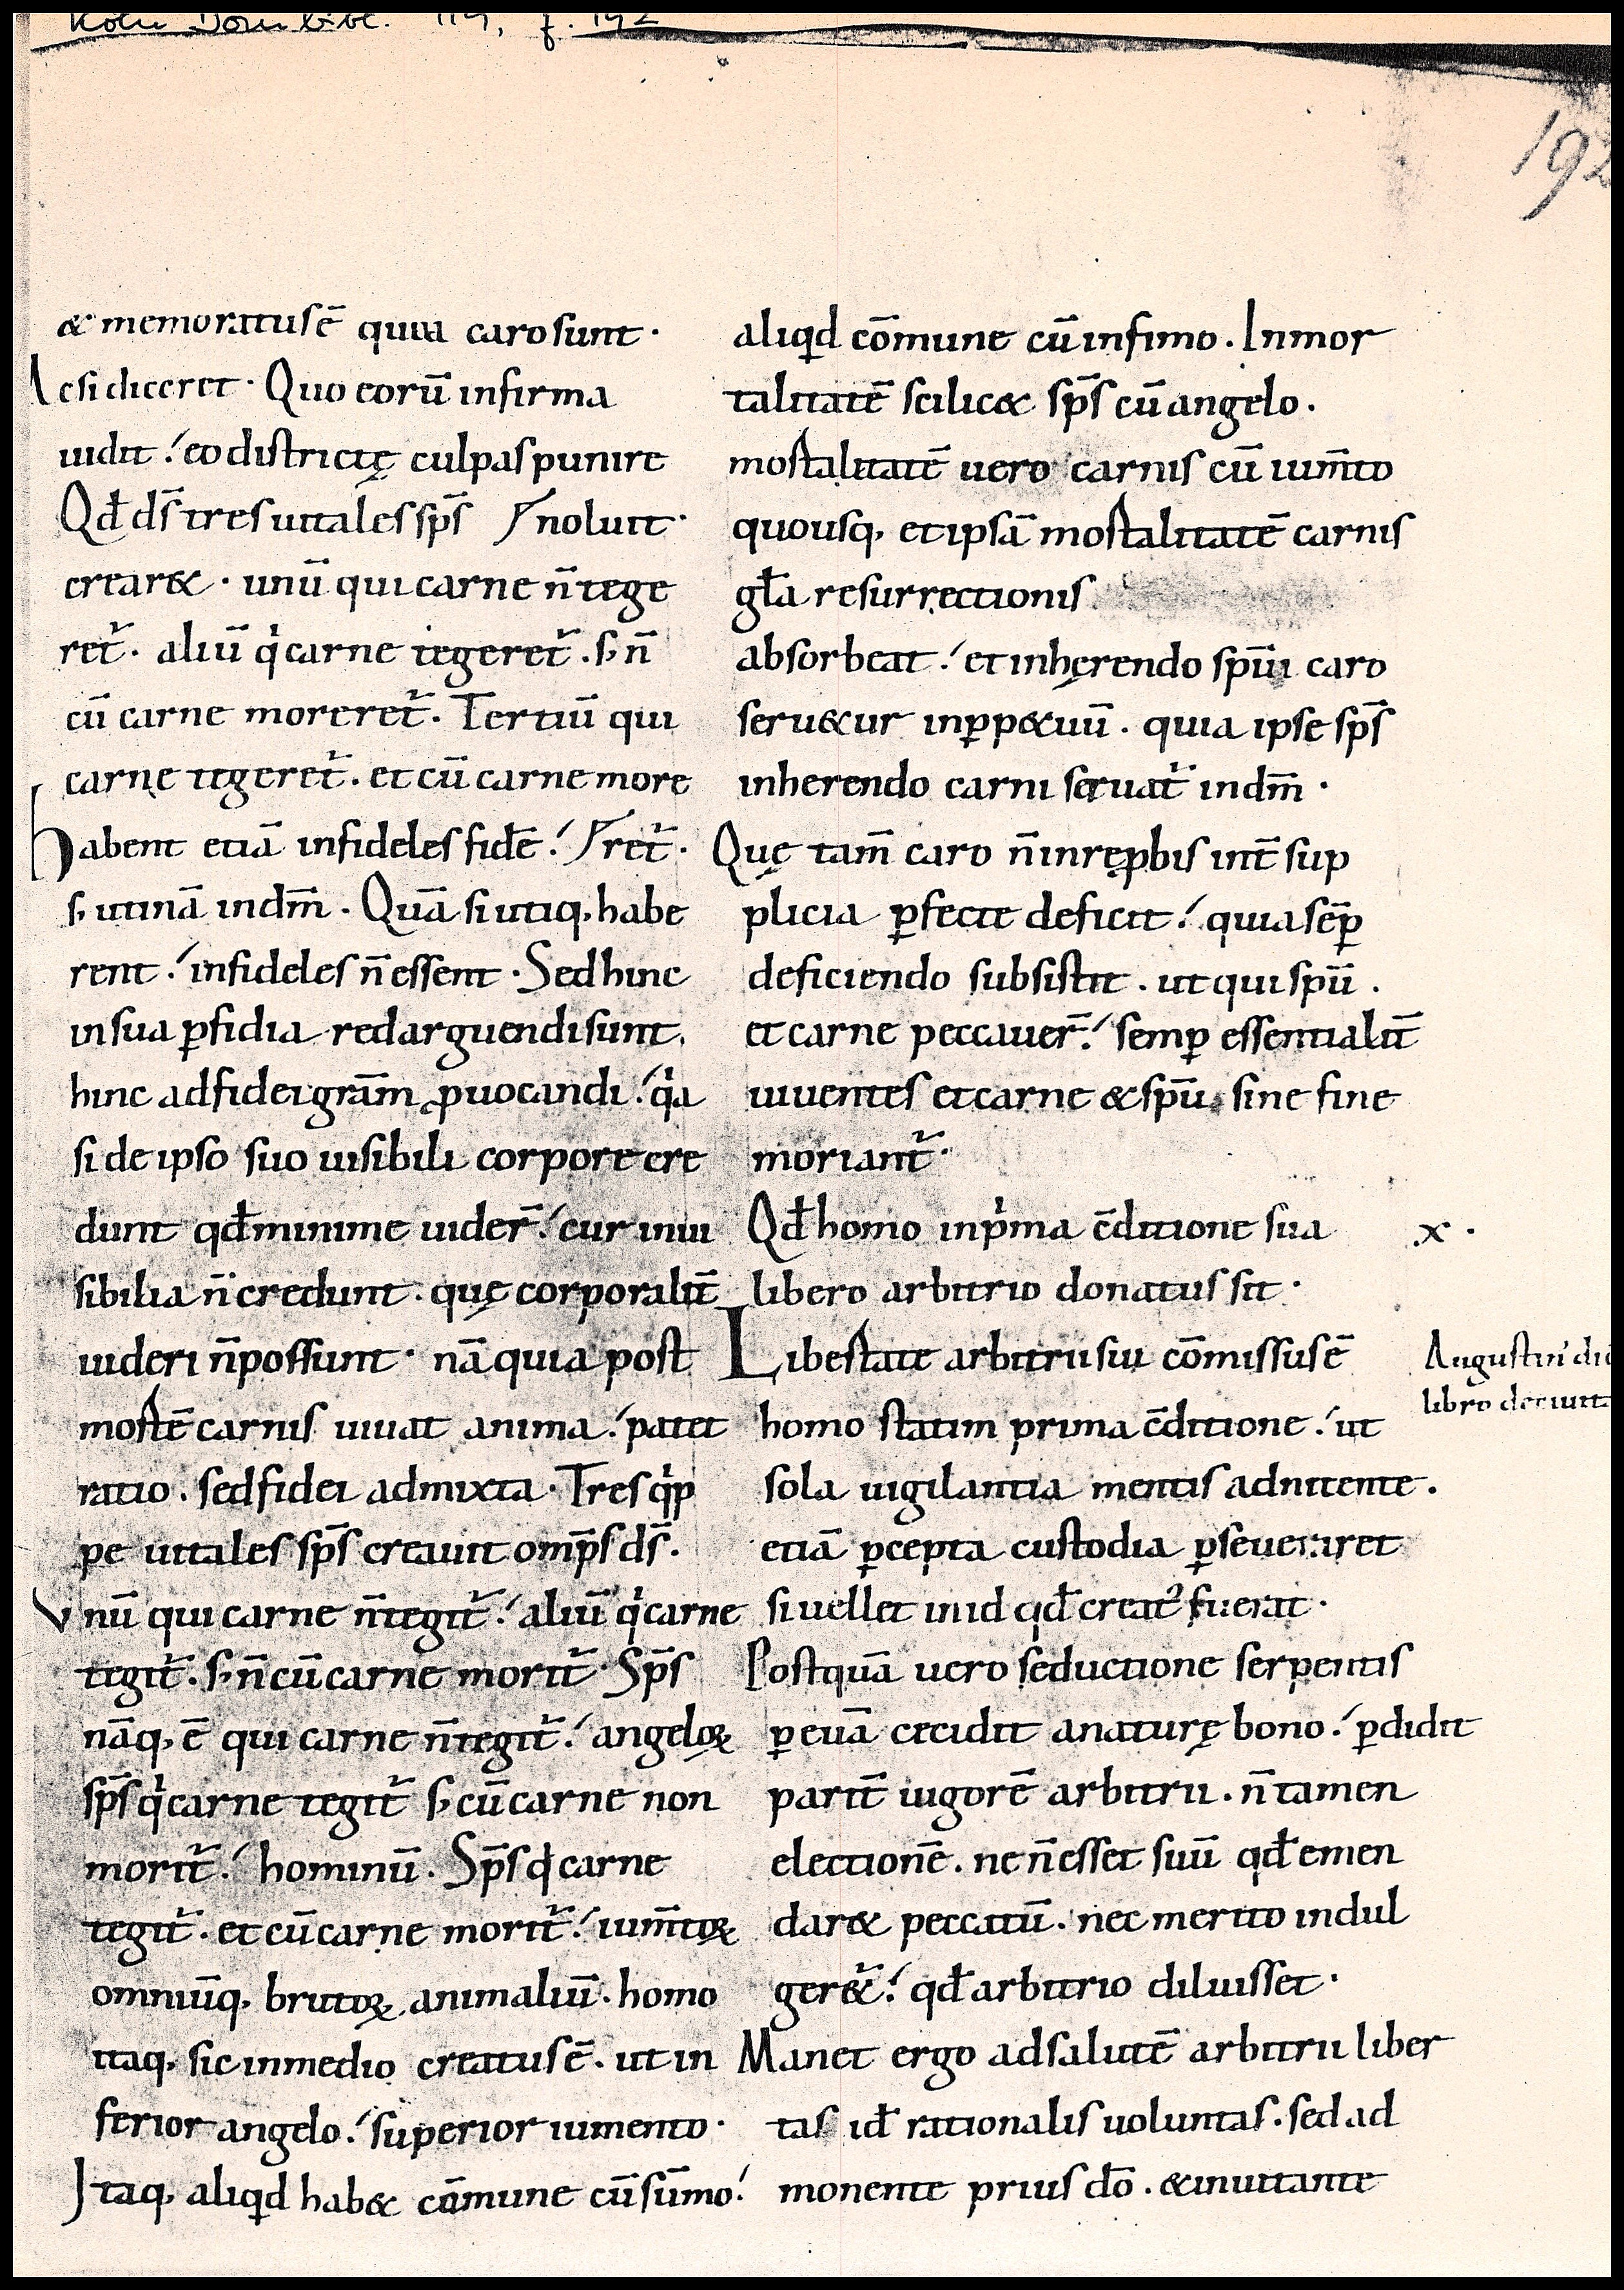 Köln Dombibl. 119, f. 192
192
& memoratus ē quia caro sunt ·
Ac si diceret · Quo eorū infirma
uidit ⁒ eo districtę culpas punire
Qd̄ ds̄ tres uitales sp̄s / noluit ·
crear& · unū qui carne n̄ tege
ret̄ · aliū q̇ carne tegeret̄ · s; n̄
cū carne moreret̄ · Tertiū qui
carne tegeret̄ · et cū carne more
habent etiā infideles fidē ⁒ / ret̄ ·
s; utinā in dm̄ · Quā si utiq; habe
rent ⁒ infideles n̄ essent · Sed hinc
in sua ꝑfidia redarguendi sunt.
hinc ad fidei gram̄ ꝓuocandi ⁒ q̇a
si de ipso suo uisibili corpore cre
dunt qd̄ minime uider̄ ⁒ cur inui
sibilia n̄ credunt · quę corporalit̄
uideri n̄ possunt · nā quia post
mortē carnis uiuat anima ⁒ patet
ratio · sed fidei admixta · Tres q̇p
pe uitales sp̄s creauit omp̄s ds̄ ·
Vnū qui carne n̄ tegit̄ ⁒ aliū q̇ carne
tegit̄ · s; n̄ cū carne morit̄ · Sp̄s
nāq; ē qui carne n̄ tegit̄ ⁒ angeloꝝ
sp̄s q̇ carne tegit̄ s; cū carne non
morit̄ ⁒ hominū · Sp̄s q̇ carne
tegit̄ · et cū carne morit̄ ⁒ ium̄toꝝ
omniūq; brutoꝝ animaliū · homo
itaq; sic in medio creatus ē · ut in
ferior angelo ⁒ superior iumento ·
Itaq; aliqd hab& cōmune cū sūmo ⁒
aliqd cōmune cū infimo · Inmor
talitatē scilic& sp̄s cū angelo ·
mortalitatē uero carnis cū ium̄to
quousq; et ipsā mortalitatē carnis
gl̄a resurrectionis
absorbeat ⁒ et inhęrendo spūi caro
seru&ur in ꝑp&uū · quia ipse sp̄s
inherendo carni seruat̄ in dm̄ ·
Quę tam̄ caro n̄ in reꝓbis int̄ sup
plicia ꝑfecte deficit ⁒ quia sēꝑ
deficiendo subsistit · ut qui spū ·
et carne peccauer̄ ⁒ semꝑ essentialit̄
uiuentes et carne & spū · sine fine
moriant̄ ·
Qd̄ homo in pͥma c̄ditione sua
.x ·
libero arbitrio donatus sit ·
Libertate arbitrii sui cōmissus ē
Augustin' dic
homo statim prima c̄ditione ⁒ ut
sola uigilantia mentis adnitente ·
etiā ꝑcepta custodia ꝑseueraret
si uellet in id qd̄ creat᾽ fuerat ·
Postquā uero seductione serpentis
ꝑ euā cecidit a naturę bono ⁒ ꝑdidit
parit̄ uigorē arbitrii · n̄ tamen
electionē · ne n̄ esset suū qd̄ emen
dar& peccatū · nec merito indul
ger&̄ ⁒ qd̄ arbitrio diluisset ·
Manet ergo ad salutē arbitrii liber
tas id̄ rationalis uoluntas · sed ad
monente prius dō · & inuitante